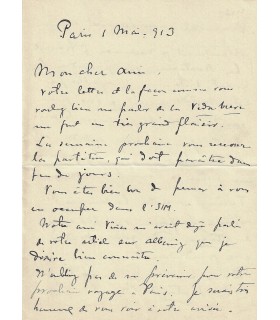 Paris 1 Mai - 913
Mon cher ami.
Votre lettre et la façon dont vous
voulez bien me parler de la Vida breve
me font un très grand plaisir.
La semaine prochaine vous recevrez
la partition, qui doit paraître dans
peu de jours.
Vous êtes bien bon de penser à vous
en occuper dans l'SIM.
Notre ami Viñes m'avait déjà parlé
de votre article sur Albeniz que je
désire bien connaître.
N'oubliez pas de me prévenir pour votre
prochain voyage à Paris. Je
de vous voir à votre arrivée.